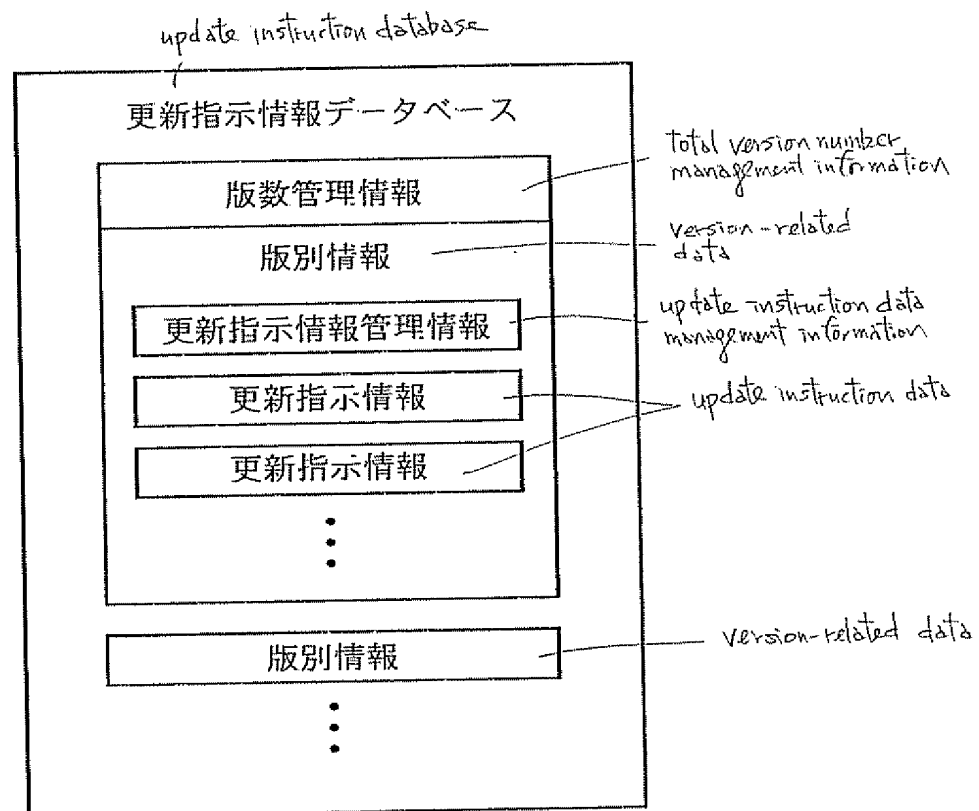 update instruction database
更新指示情報データベース
版数管理情報
total version number
management information
版別情報
version-related
data
更新指示情報管理情報
update instruction data
management information
更新指示情報
update instruction data
更新指示情報
版別情報
version-related data